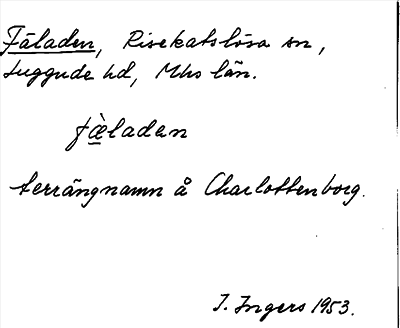 Fäladen, Risekatslösa sn,
Luggude hd, Mhs län.
fæ̀laden
terrängnamn å Charlottenborg.
I. Ingers 1953.